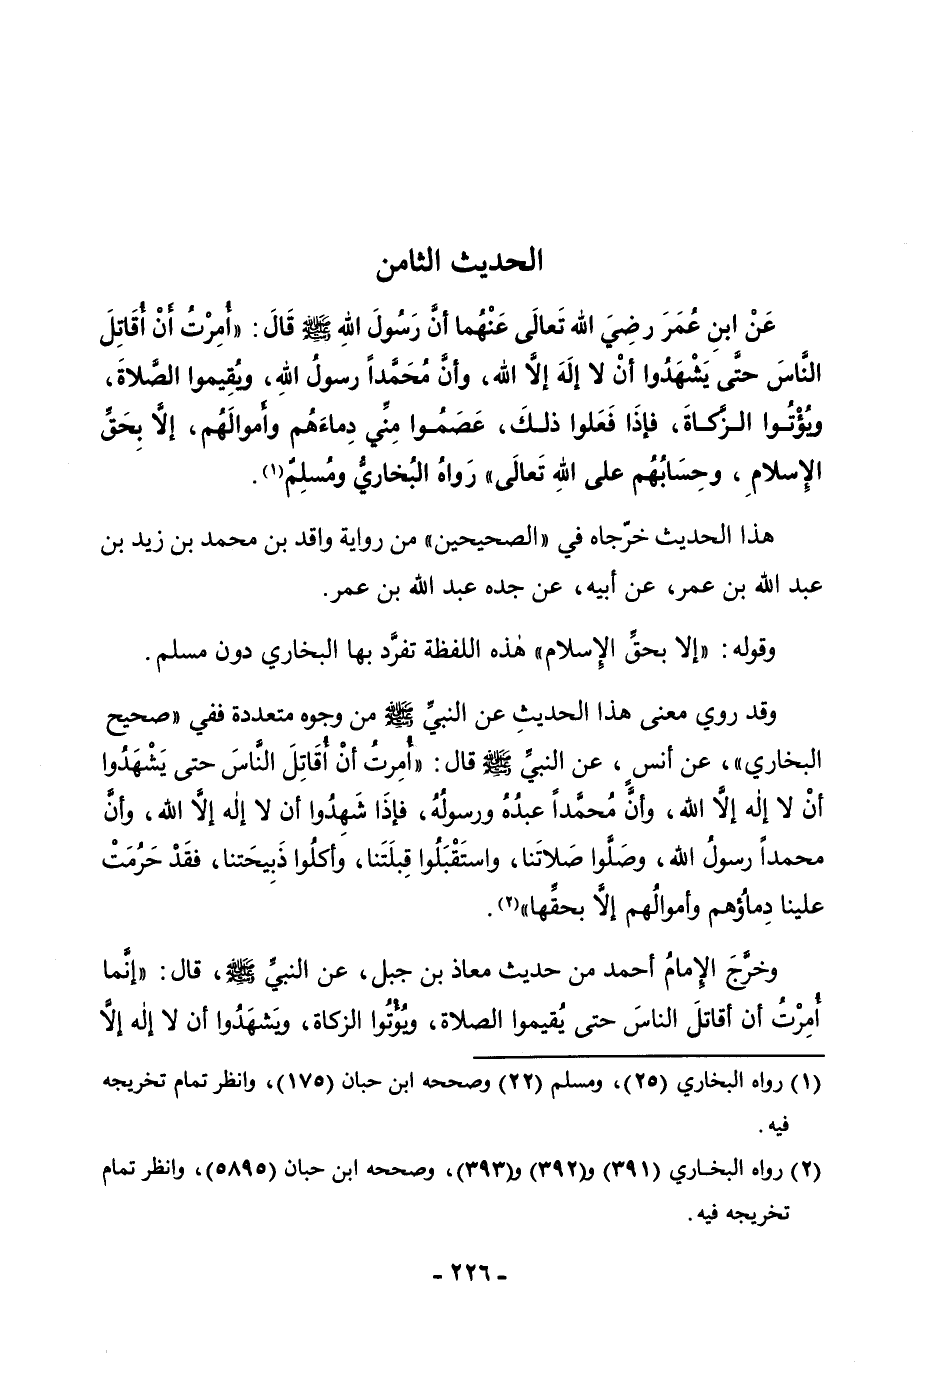 الحديث الثامن
عَنْ ابنِ عُمَرَ رضِيَ الله تَعالَى عَنْهُما أنَّ رَسُولَ اللهِ ﷺ قَالَ: «أُمِرْتُ أَنْ أُقَاتِلَ
النَّاسَ حتَّى يَشْهَدُوا أنْ لا إلَهَ إلَّا الله، وأنَّ مُحَمَّداً رسولُ اللهِ، ويُقِيموا الصَّلاةَ،
ويُؤْتُوا الزَّكاةَ، فإذَا فَعَلوا ذلكَ، عَصَمُوا مِنِّي دِماءَهُم وأَموالَهُم، إلَّا بِحَقِّ
الإِسلامِ، وحِسَابُهُم على اللهِ تَعالَى» رَواهُ البُخاريُّ ومُسلِمٌ(١).
هذا الحديث خرّجاه في «الصحيحين» من رواية واقد بن محمد بن زيد بن
عبد الله بن عمر، عن أبيه، عن جده عبد الله بن عمر.
وقوله: «إلا بحقِّ الإِسلام» هٰذه اللفظة تفرَّد بها البخاري دون مسلم.
وقد روي معنى هذا الحديثِ عن النبيِّ ﷺ من وجوه متعددة ففي «صحيح
البخاري»، عن أنسٍ، عن النبيِّ ﷺ قال: «أُمِرتُ أنْ أُقَاتِلَ النَّاسَ حتى يَشْهَدُوا
أنْ لا إلٰه إلَّا الله، وأنَّ مُحمَّداً عبدُهُ ورسولُهُ، فإذَا شَهِدُوا أن لا إلٰه إلَّا الله، وأنَّ
محمداً رسولُ الله، وصَلَّوا صَلاتَنا، واستَقْبَلُوا قِبلَتَنا، وأكلُوا ذَبيحَتنا، فقَدْ حَرُمَتْ
علينا دِماؤهم وأموالُهم إلَّا بحقِّها»(٢).
وخرَّجَ الإِمامُ أحمد من حديث معاذ بن جبل، عن النبيِّ ﷺ، قال: «إنَّما
أُمِرْتُ أن أقاتلَ الناسَ حتى يُقيموا الصلاة، ويُؤْتُوا الزكاة، ويَشهَدُوا أن لا إلٰه إلَّا
(١) رواه البخاري (٢٥)، ومسلم (٢٢) وصححه ابن حبان (١٧٥)، وانظر تمام تخريجه
فيه.
(٢) رواه البخاري (٣٩١) و(٣٩٢) و(٣٩٣)، وصححه ابن حبان (٥٨٩٥)، وانظر تمام
تخريجه فيه.
- ٢٢٦ -